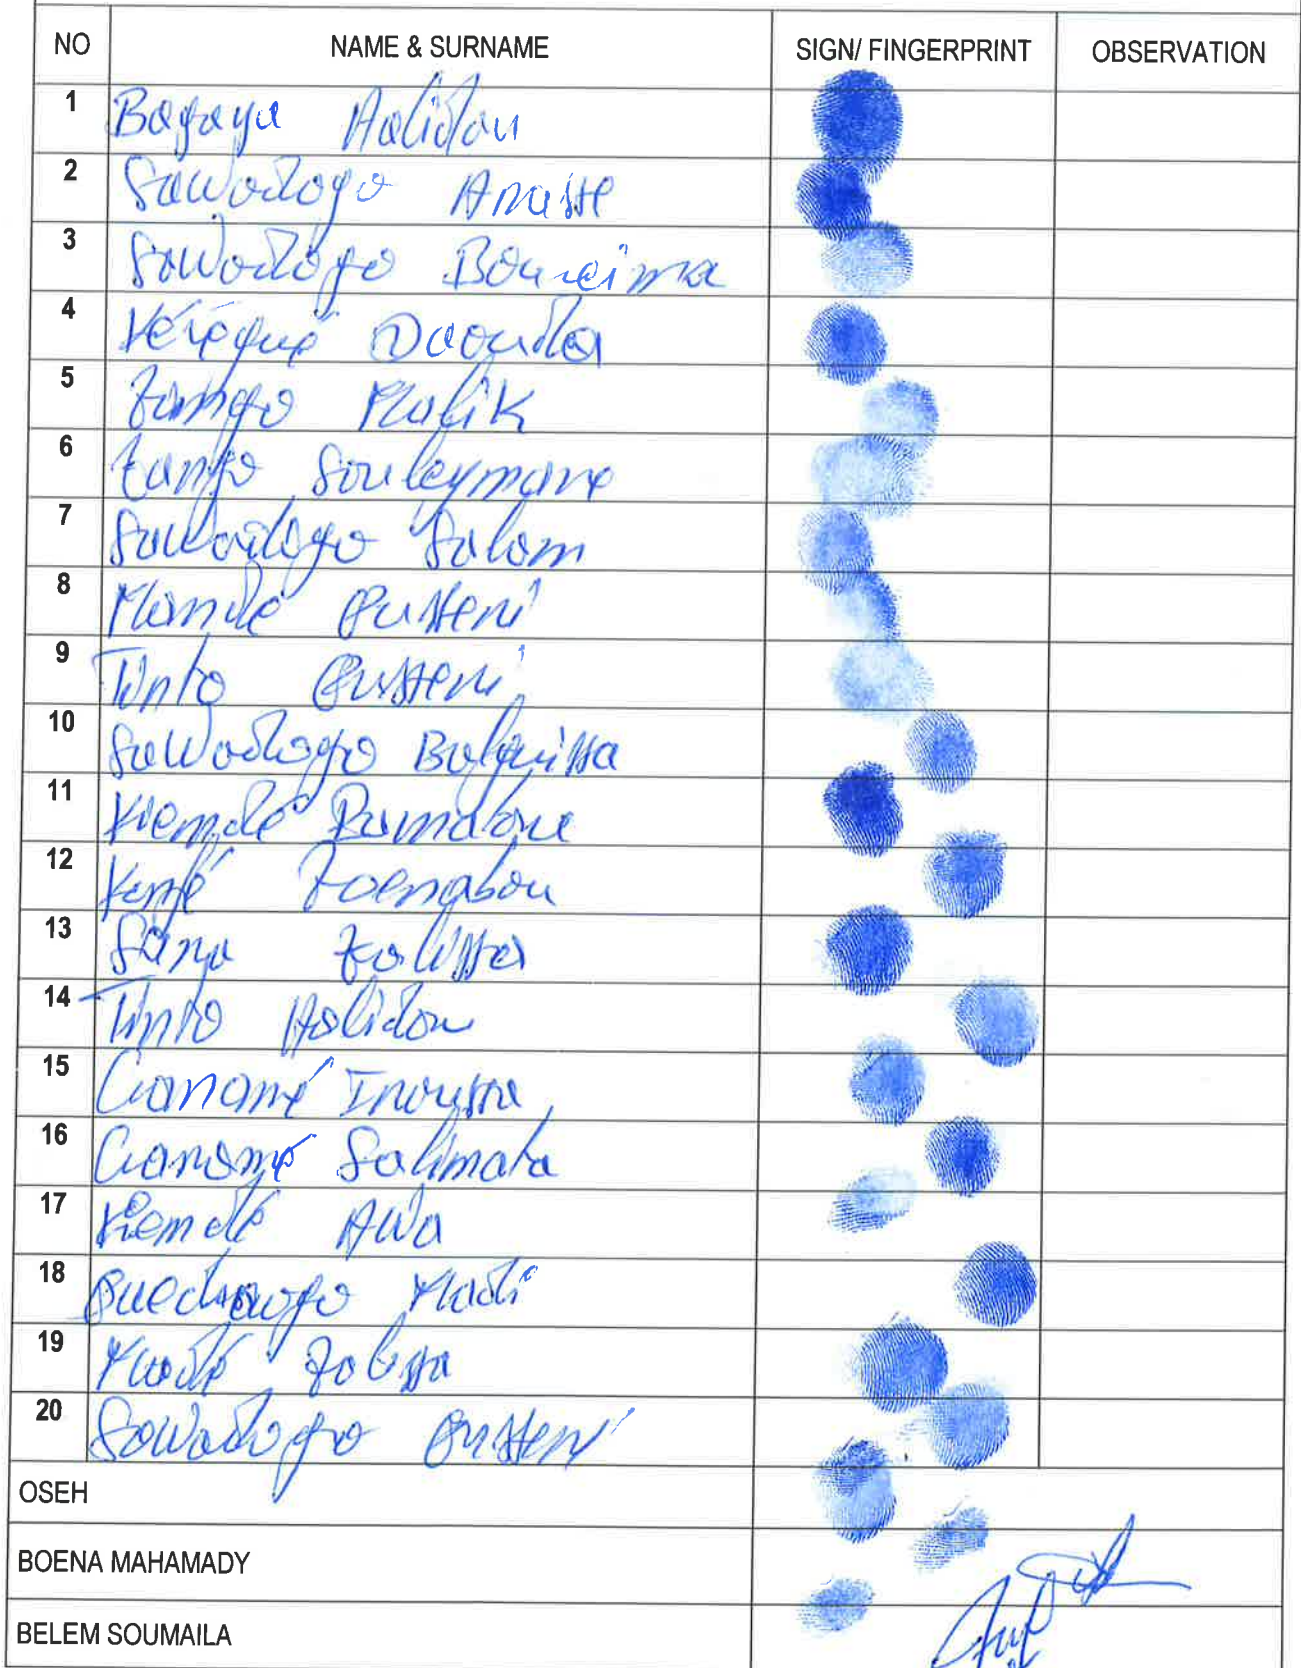 NO NAME & SURNAME SIGN/ FINGERPRINT OBSERVATION
1 Bagaya Halidou
2 Sawadogo Anasse
3 Sawadogo Boureima
4 Daouda
5 Zango Malik
6 Zango Souleymane
7 Sawadogo Salam
8 Mandé Ousseni
9 Tinto Ousseni
10 Sawadogo Balguissa
11 Kiemdé Ramatou
12 Zoenabou
13 Sana Zalissa
14 Tinto Halidou
15 Ganamé Inoussa
16 Ganamé Salimata
17 Kiemdé Awa
18 Ouedraogo Madi
19 Zalissa
20 Sawadogo Ousseni
OSEH
BOENA MAHAMADY
BELEM SOUMAILA